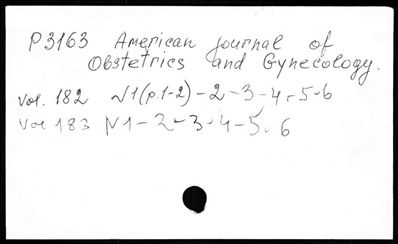 P3163 American journal of
Obstetrics and Gynecology.
Vol. 182 N1(p.1-2)-2-3-4-5-6
Vol 183 N1-2-3-4-5-6